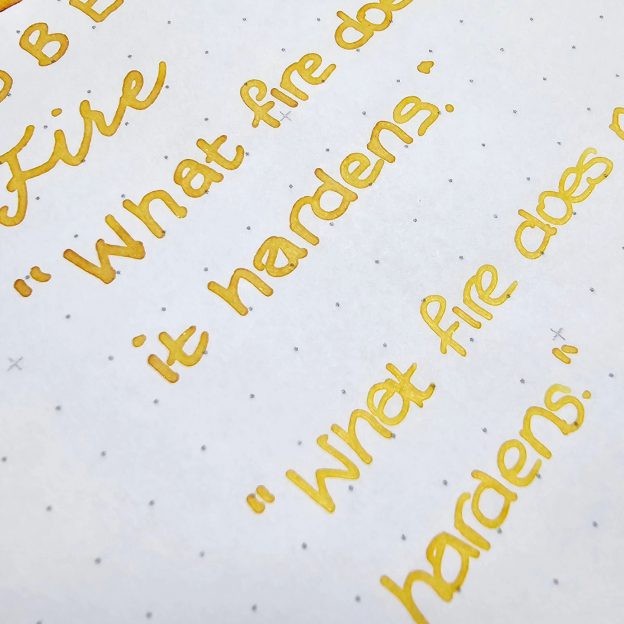 OBE
Fire
"What fire does
it hardens."
"What fire does
hardens."